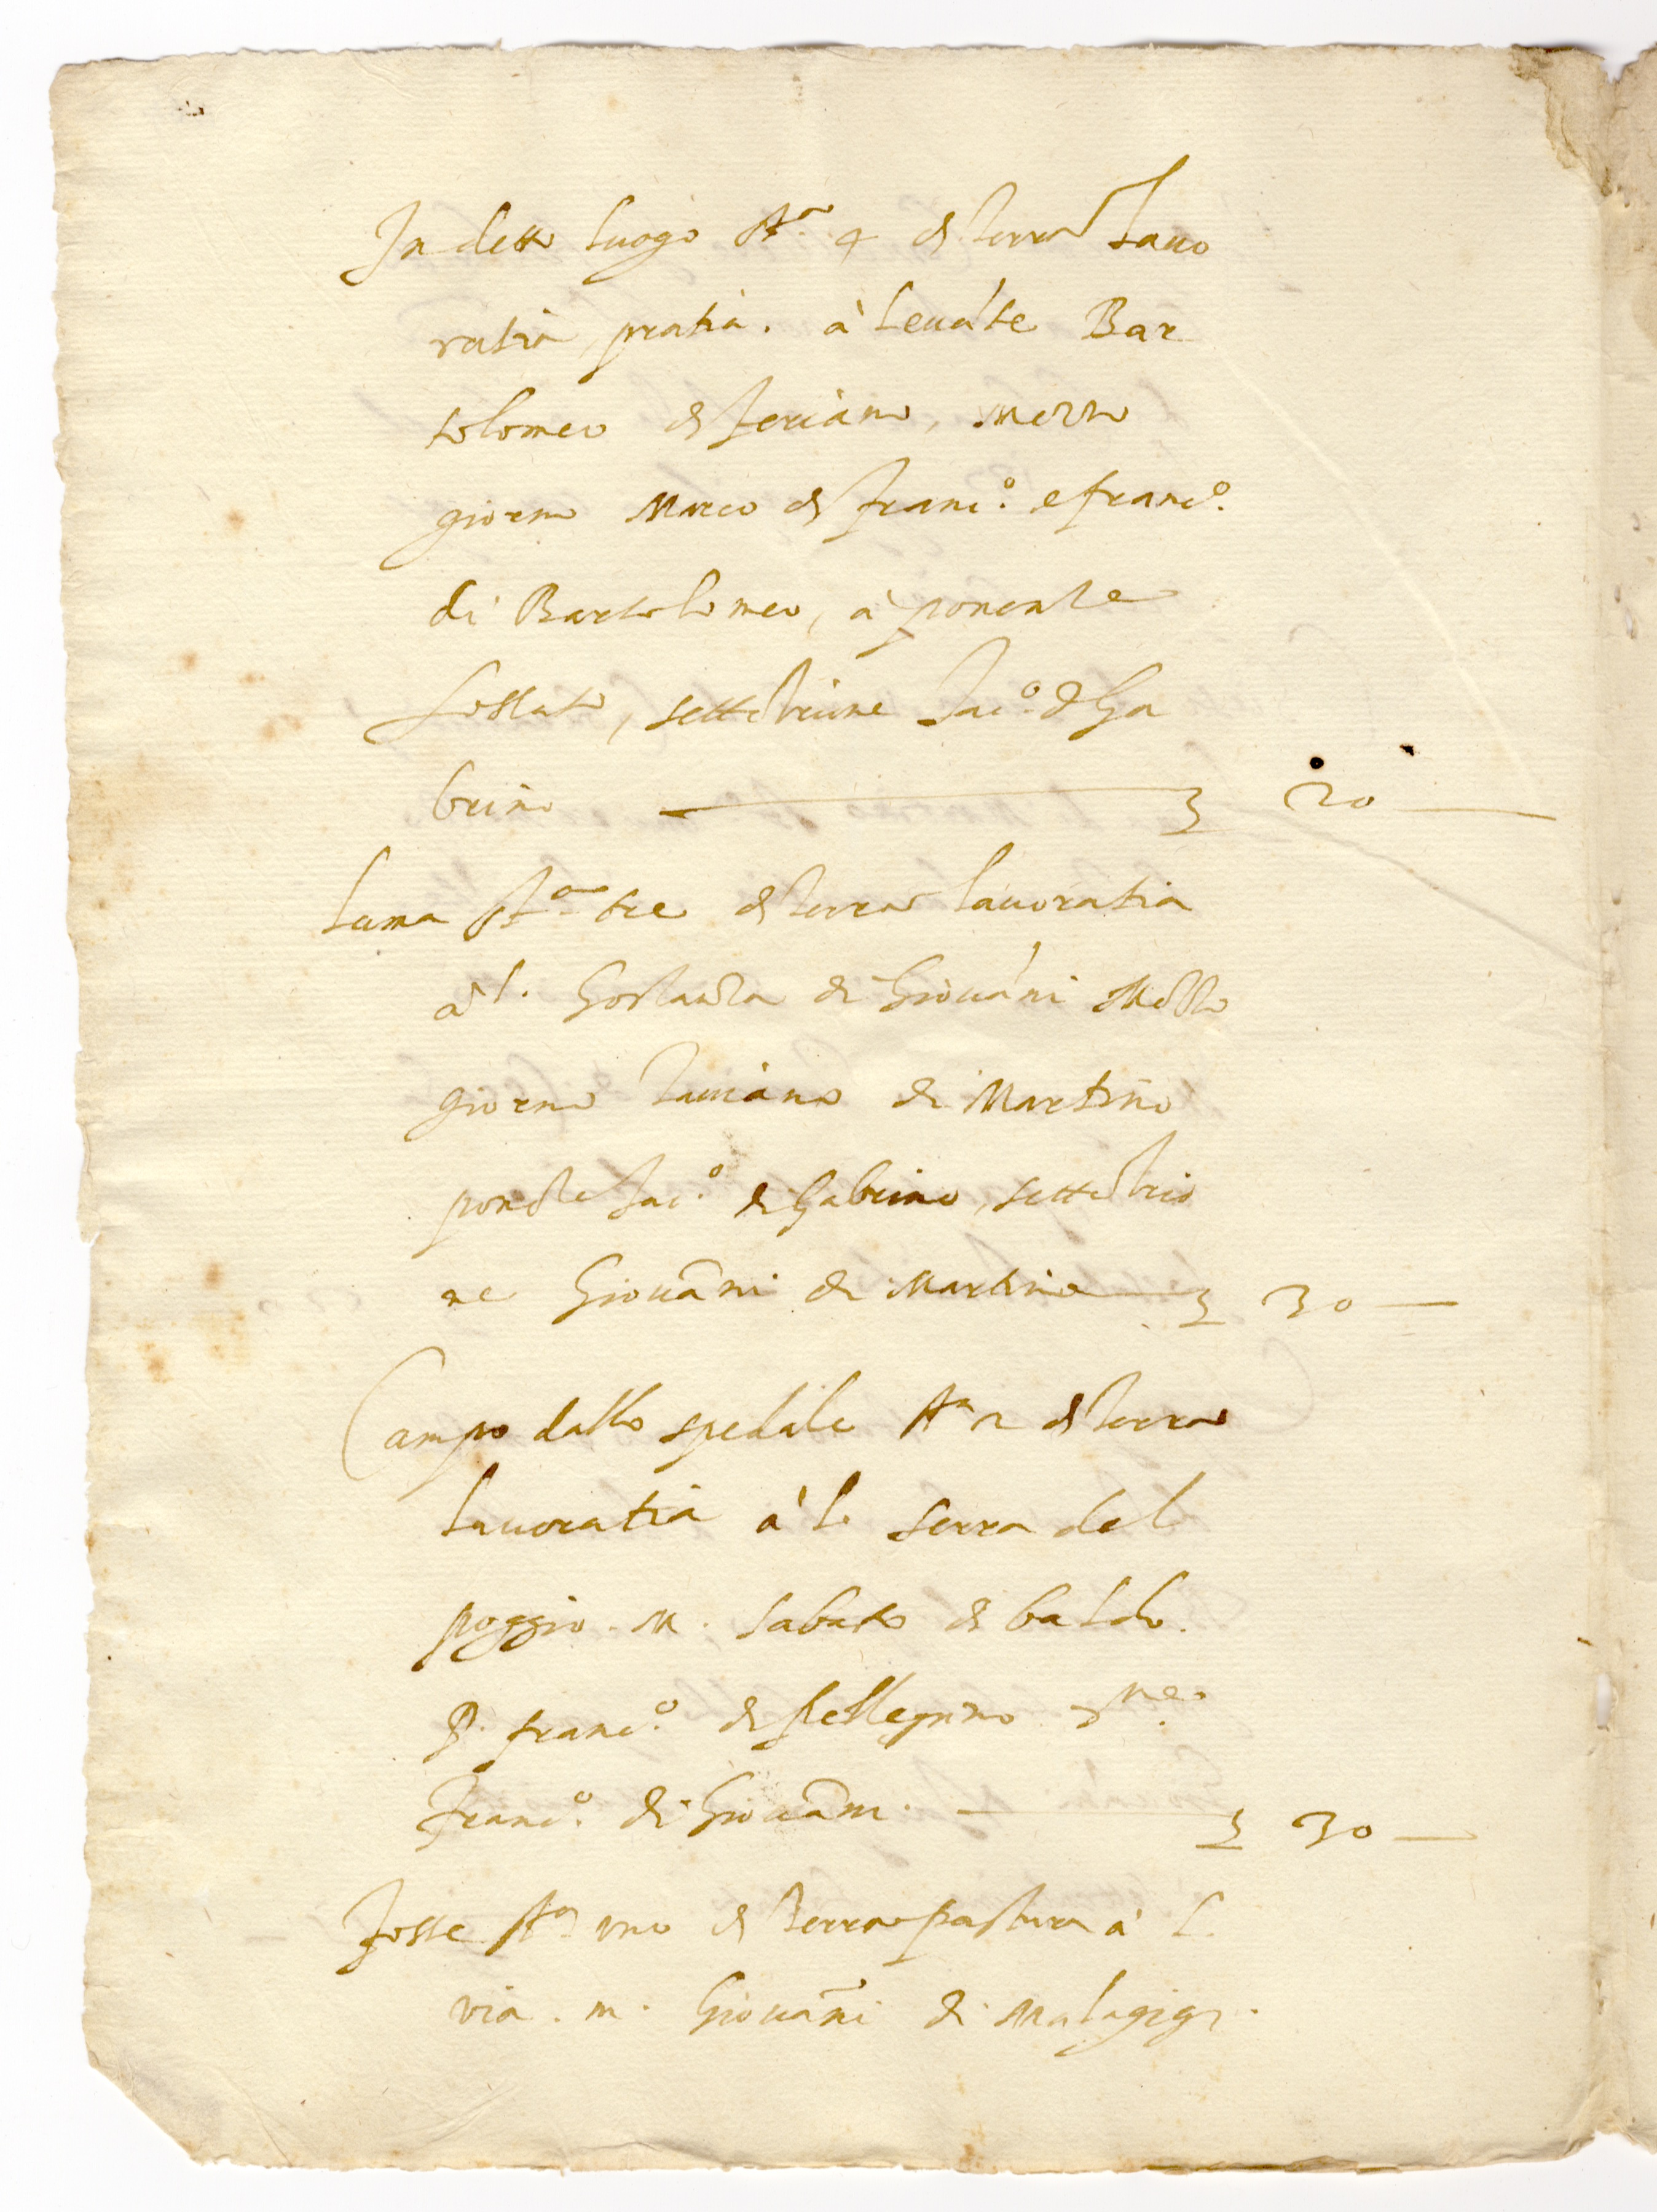 In detto luogo st.ª 4 di terra lauo
ratia pratia. à leuãte Bar
tolomeo di Feriano, mezzo
giorno Marco di Franc.º e franc.º
di Bartolomeo, à ponente
fossato, settẽtrione Iac.º di Ga
brino 20
Luma st.ª tre di terra lauoratia
à l. Gostanza di Giouãni Mezzo
giorno di Martino
ponẽte Iac.º di Gabrino, settẽtrio
ne Giouãni di Martino 30
Campo dallo spedale st.ª 2 di terra
lauoratia à l. serra del
poggio. M. Sabato di baldo.
P. franc.º di Pellegrino
Franc.º di Giouãni. 30
Fosse st.ª uno di terra pastura à l.
via. m. Giouãni di Malagigi.